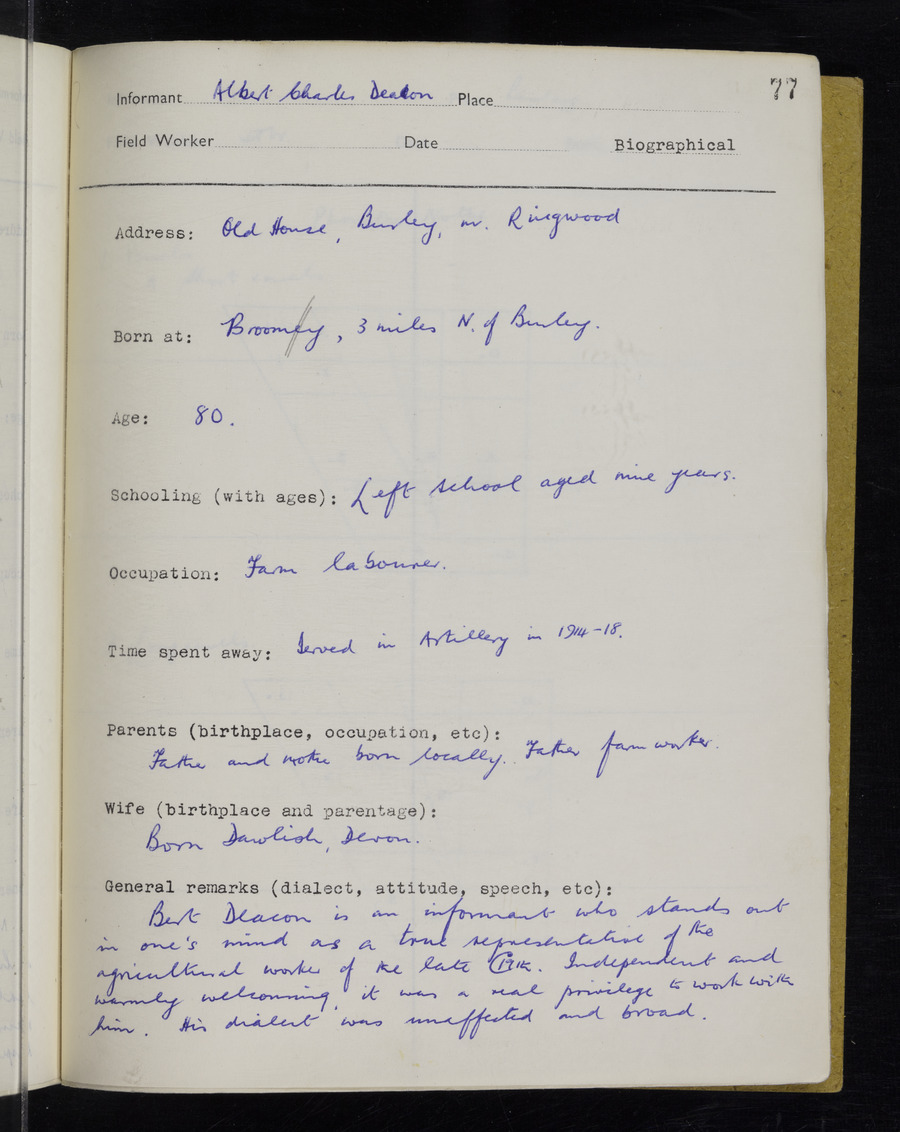 77
Informant Albert Charles Deacon Place
Field Worker Date Biographical
Address: Old House, Burley, nr. Ringwood
Born at: Broomey, 3 miles N. of Burley.
Age: 80.
Schooling (with ages): Left school aged nine years.
Occupation: Farm labourer.
Time spent away: Served in Artillery in 1914-18.
Parents (birthplace, occupation, etc):
Father and mother born locally. Father farm worker.
Wife (birthplace and parentage):
Born Dawlish, Devon.
General remarks (dialect, attitude, speech, etc):
Bert Deacon is an informant who stands out
in one's mind as a true representative of the
agricultural worker of the late C19th. Independent and
warmly welcoming, it was a real privilege to work with
him. His dialect was unaffected and broad.